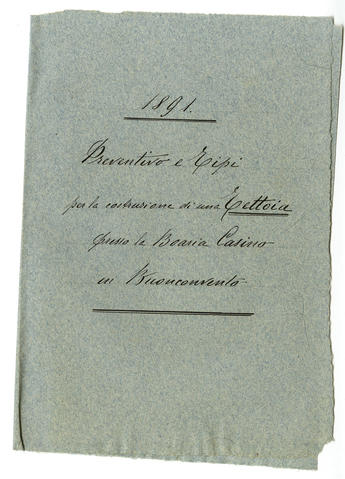 1891.
Preventivo e Tipi
per la costruzione di una Tettoia
presso la Boaria Casino
in Buonconvento